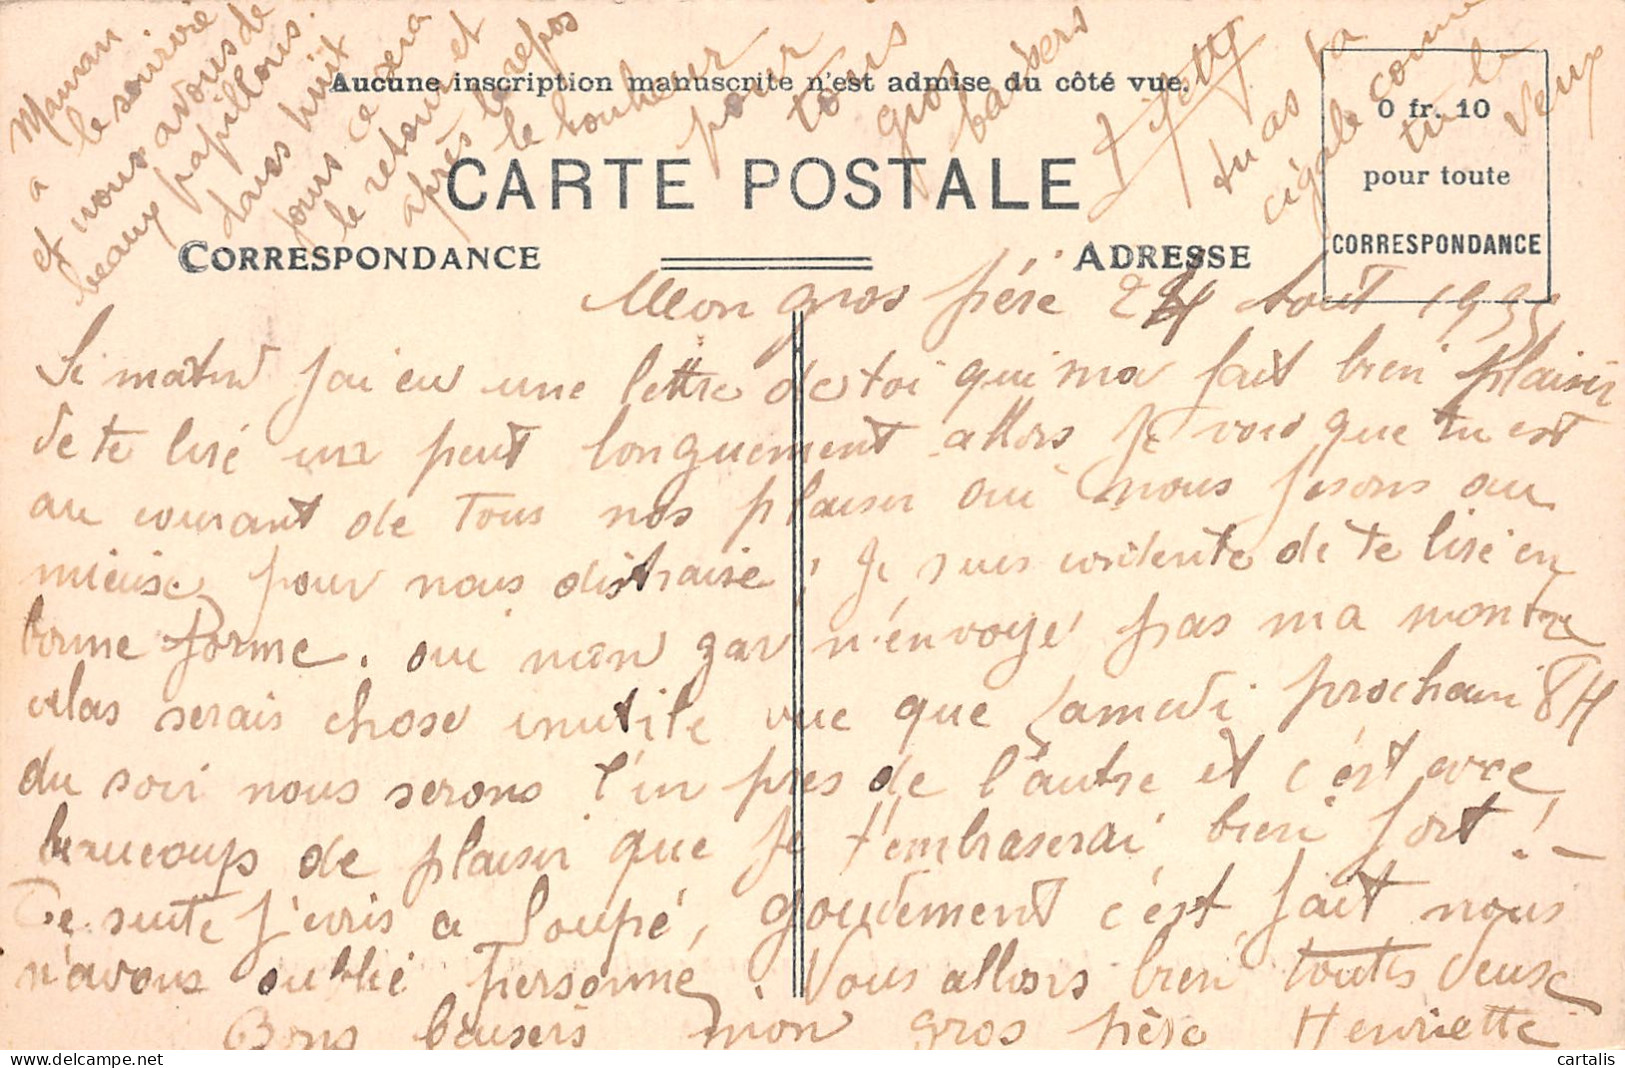 Maman
a le sourire
et nous avons de
beaux papillons.
dans huit
jours ce sera
le retour et
après le repos
le bonheur
pour
tous
gros
baisers
tu as la
cigale comme
tu le
veux
Aucune inscription manuscrite n'est admise du côté vue.
CARTE POSTALE
CORRESPONDANCE
ADRESSE
0 fr. 10
pour toute
CORRESPONDANCE
Mon gros frére 24 Aout 1933
Si matin J'ai eu une lettre de toi qui ma fait bien plaisir
de te lire un peut longuement allors Je vois que tu est
au courant de tous nos plaisir oui nous fesons au
mieuse pour nous distraire ; Je suis contente de te lire en
bonne forme. oui mon gar n'envoye pas ma montre
celas serais chose inutile vue que Samedi prochain 8H
du soir nous serons l'un pres de l'autre et c'est avec
beaucoup de plaisir que Je t'embraserai bien fort ! –
De suite J'ecris a Loupé, goudement c'est fait nous
n'avons oublié personne. Vous allors bien toutes deuse
Bons baisers mon gros frère Henriette
cartalis